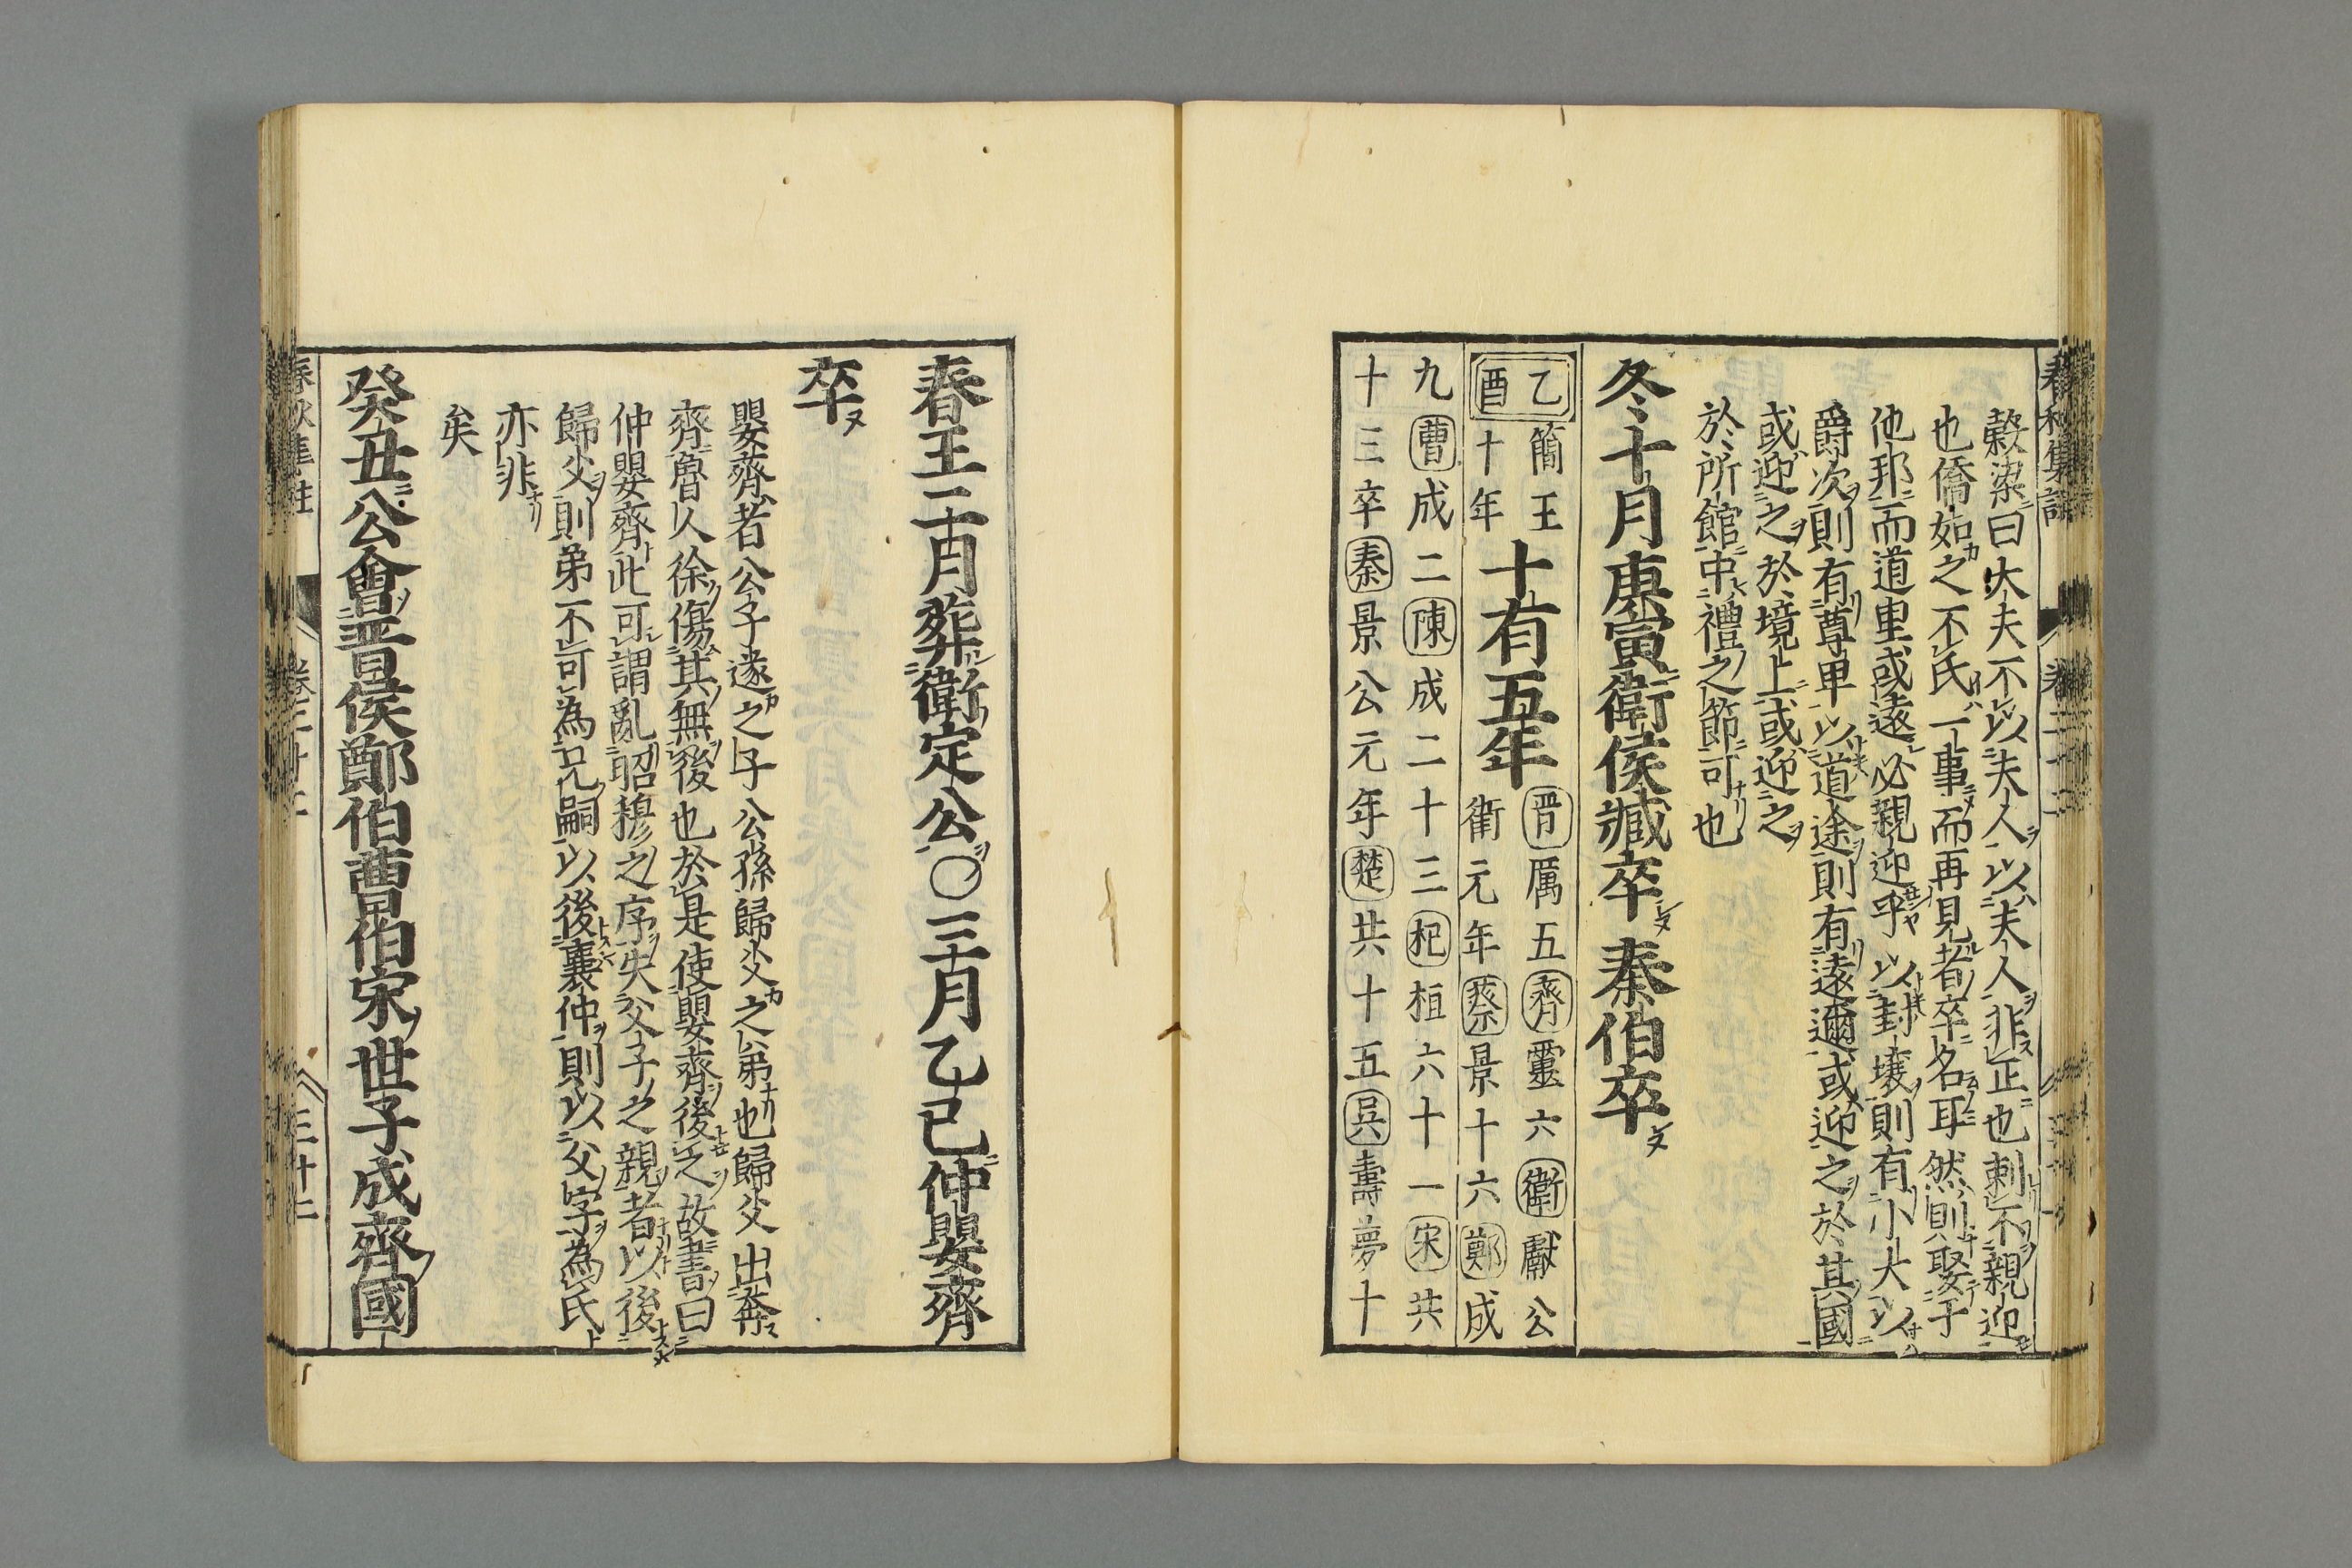 穀梁曰大夫不以夫人以夫人非正也刺不親迎
也僑如之不氏一事而再見者卒名耳然則娶于
他邦而道里或遠必親迎乎以封壤則有小大以
爵次則有尊卑以道途則有遠邇或迎之於其國
或迎之於境上或迎之
於所館中禮之節可也
冬十月庚寅衛侯臧卒秦伯卒
乙酉
簡王十年
十有五年
晋厲五齊靈六衛獻公
衛元年蔡景十六鄭成
九曹成二陳成二十三杞桓六十一宋共
十三卒秦景公元年楚共十五吳壽夢十
春王二月葬衛定公○三月乙巳仲嬰齊
卒
嬰齊者公子遂之子公孫歸父之弟也歸父出奔
齊魯人徐傷其無後也於是使嬰齊後之故書曰
仲嬰齊此可謂亂昭穆之序失父子之親者以後
歸父則弟不可為兄嗣以後襄仲則以父字為氏
亦非
矣
癸丑公會晋侯鄭伯曹伯宋世子成齊國
卷二十二
三十二